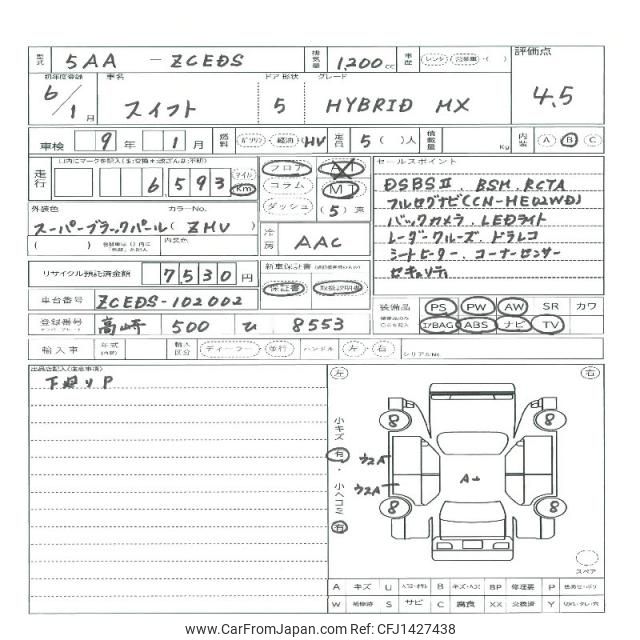 型式 5AA - ZCEDS 排気量 1,200 cc 車歴 レンタ 評価点
初年度登録 車名 ドア 形状 グレード
6/1月 スイフト 5 HYBRID MX 4.5
車検 9年 1月 燃料 ガソリン・軽油 (HV) 定員 5( )人 積載量 Kg 内装 A B C
走行 6,593 マイル Km フロア AT セールスポイント
コラム MT DSBSⅡ. BSM. RCTA
ダッシュ (5)速 フルセグナビ(CN-HE02WD)
外装色 カラーNo. バックカメラ. LEDライト
スーパーブラックパール( ZMV ) 冷房 AAC レーダークルーズ. ドラレコ
( ) 内装色 シートヒーター. コーナーセンサー
リサイクル預託済金額 7530円 新車保証書 セキュリティ
保証書 取扱説明書
車台番号 ZCEDS-102002 装備品 PS PW AW SR カワ
登録番号 高崎 500 ひ 8553 エアBAG ABS ナビ TV
輸入車 年式 輸入区分 ディーラー・並行 ハンドル 左・右 シリアルNo.
出品店記入(注意事項) 左 右
下廻りP
小キズ 有・小ヘコミ 有
8 8
ウエA A-
ウエA
8 8
スペア
A キズ U B キズ・ヘコミ BP 修理要 P
W 補修跡 S サビ C 腐食 XX 交換済 Y
www.CarFromJapan.com | Ref No: CFJ1427438